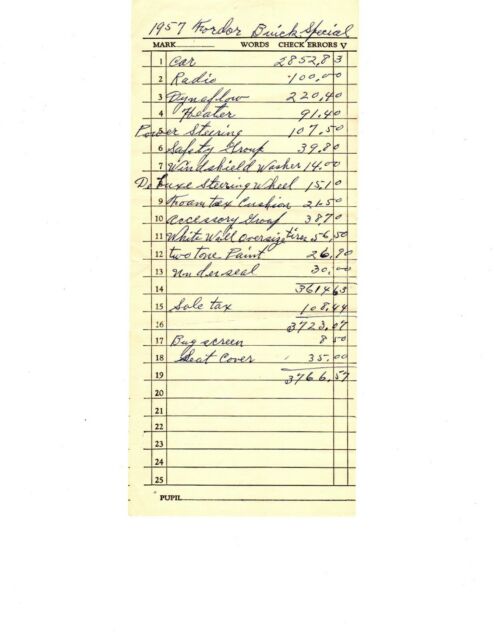 1957 Fordor Buick Special
MARK WORDS CHECK ERRORS √
1 Car 2852.83
2 Radio 100.00
3 Dynaflow 220.40
4 Heater 91.40
5 Power Steering 107.50
6 Safety Group 39.80
7 Windshield Washer 14.00
8 De Luxe Steering Wheel 15.10
9 Foamtax Cushion 21.50
10 Accessory Group 38.70
11 White Wall Oversize tires 56.50
12 two tone Paint 26.90
13 underseal 30.00
14 3614.63
15 Sale tax 108.44
16 3723.07
17 Bug screen 8 50
18 Seat Cover 35.00
19 3766.57
20
21
22
23
24
25
PUPIL